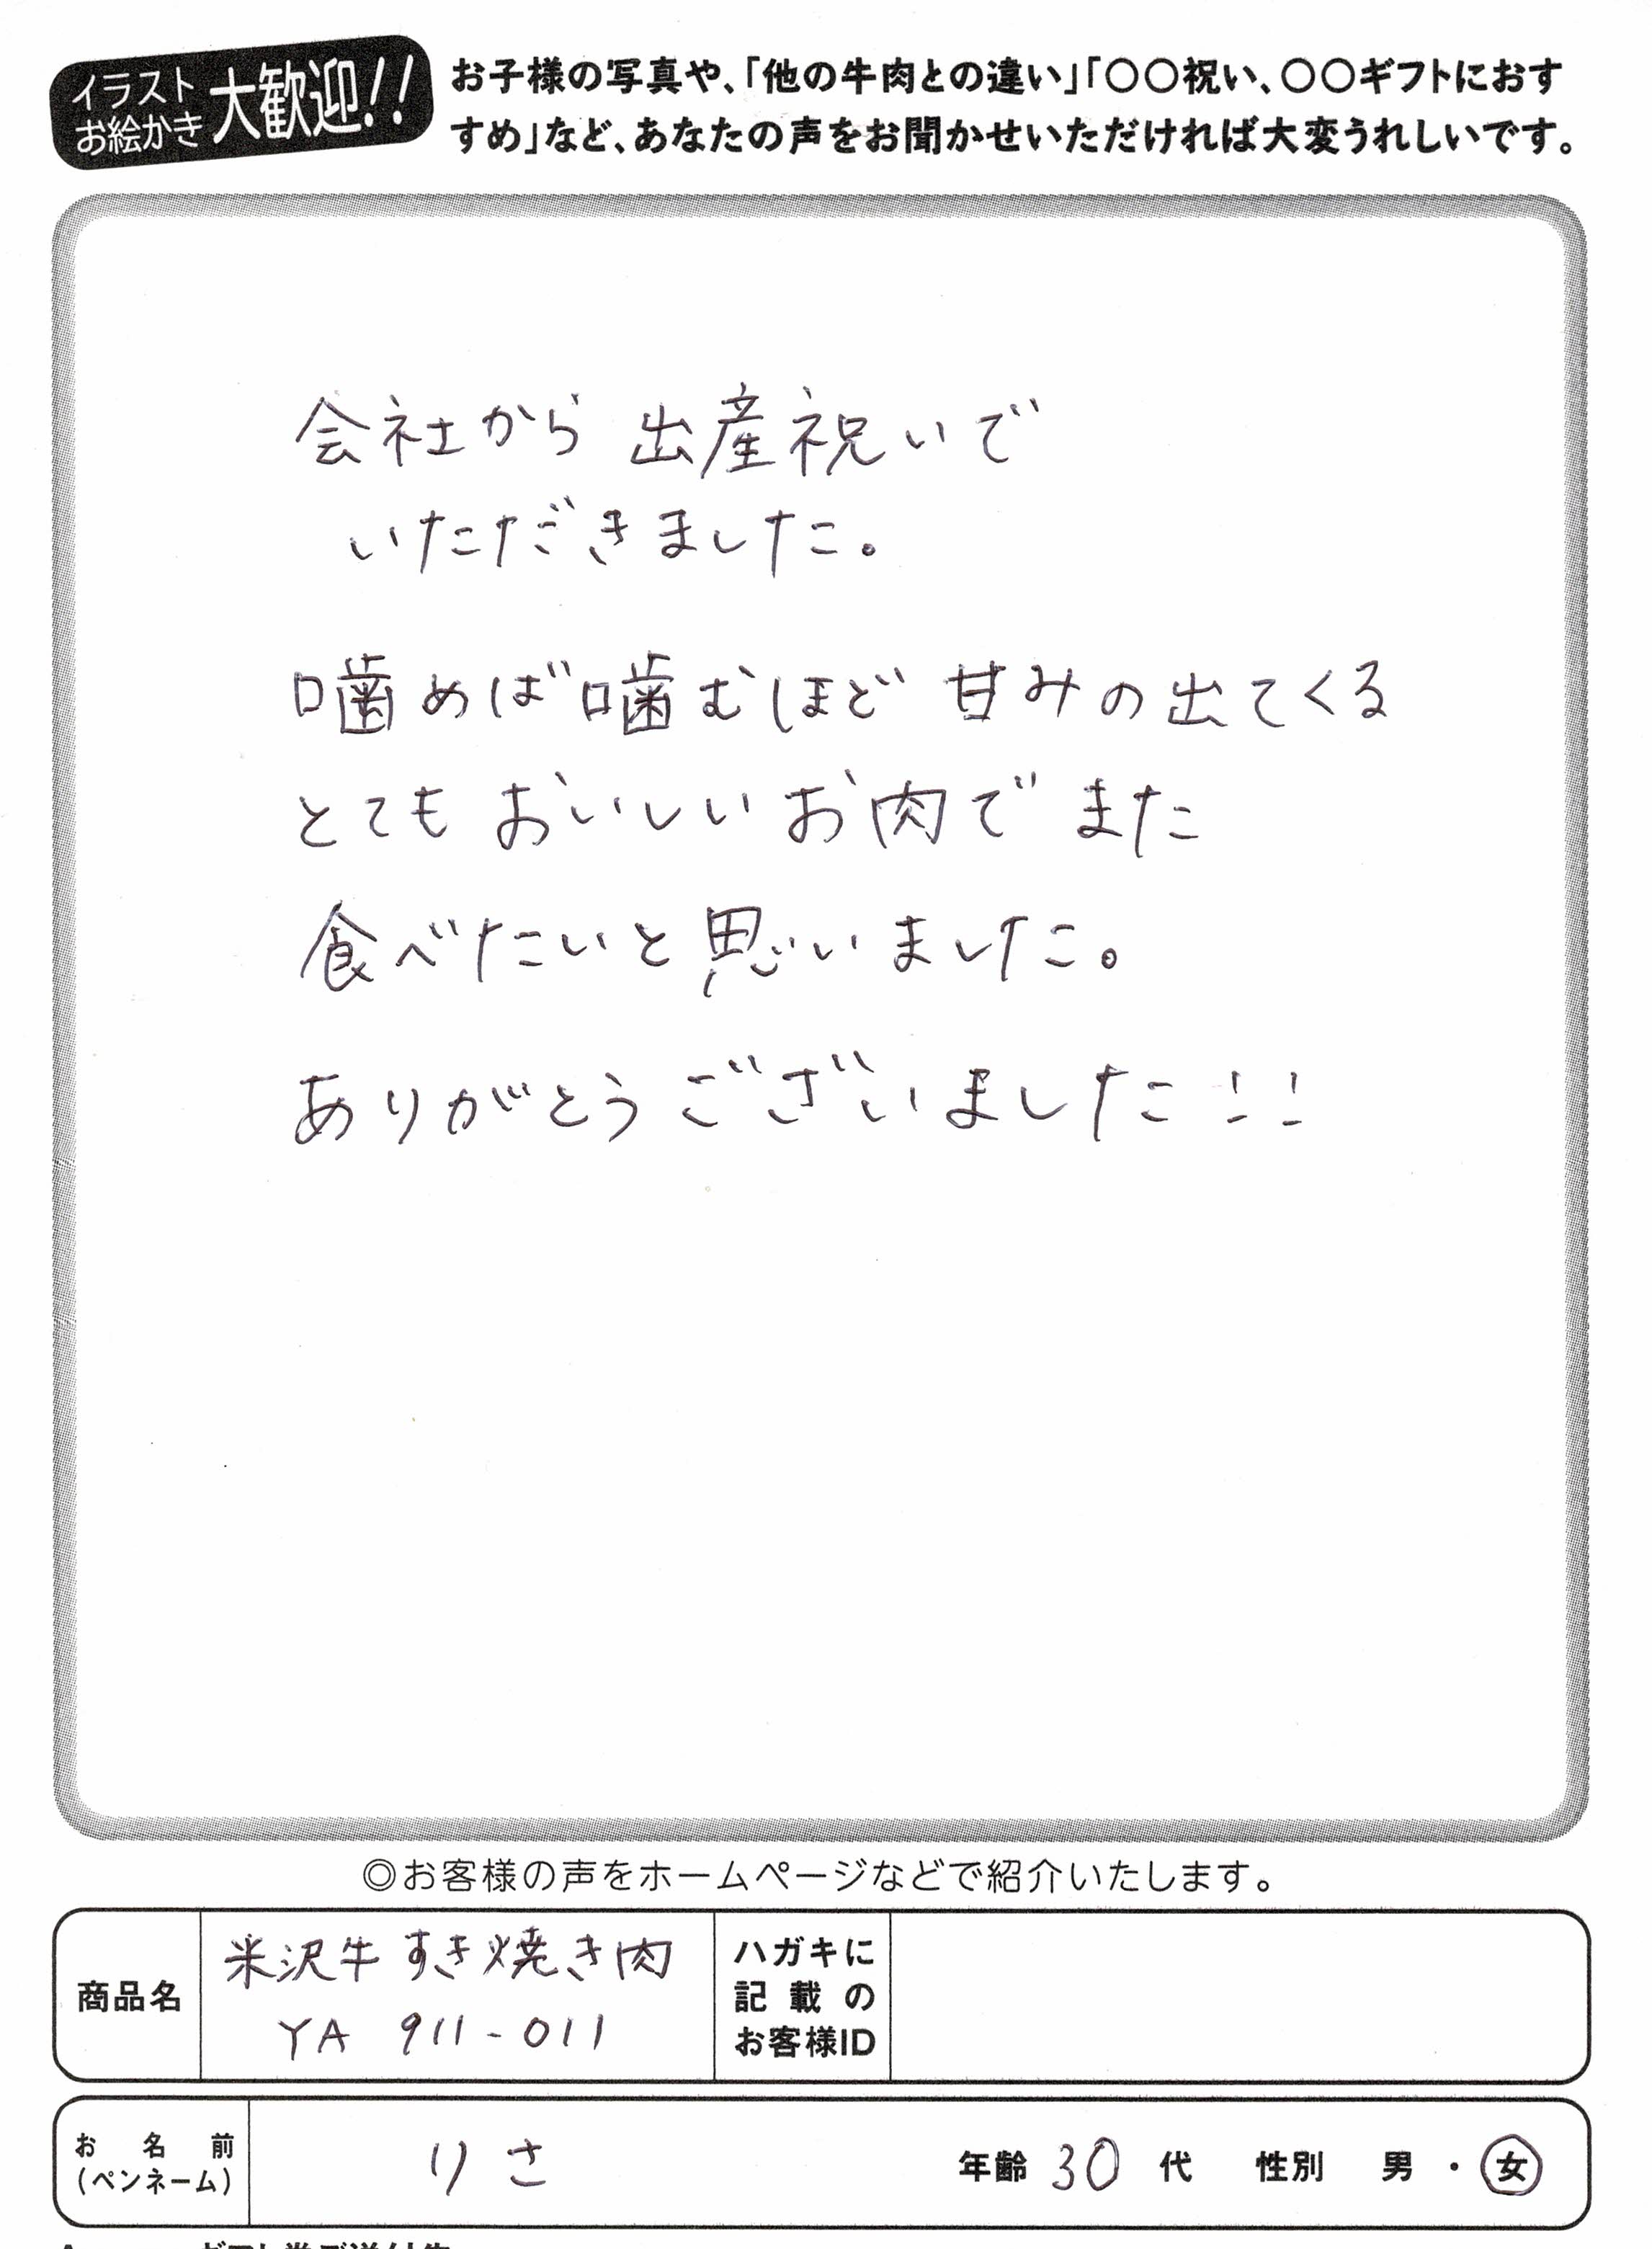 イラスト
お絵かき
大歓迎!!
お子様の写真や、「他の牛肉との違い」「〇〇祝い、〇〇ギフトにおす
すめ」など、あなたの声をお聞かせいただければ大変うれしいです。
会社から 出産祝いで
いただきました。
噛めば噛むほど 甘みの出てくる
とても おいしい お肉で また
食べたいと思いました。
ありがとう ございました!!
◎お客様の声をホームページなどで紹介いたします。
商品名
米沢牛 すき焼き肉
YA 911-011
ハガキに
記載の
お客様ID
お名前
(ペンネーム)
りさ
年齢 30 代 性別 男・女